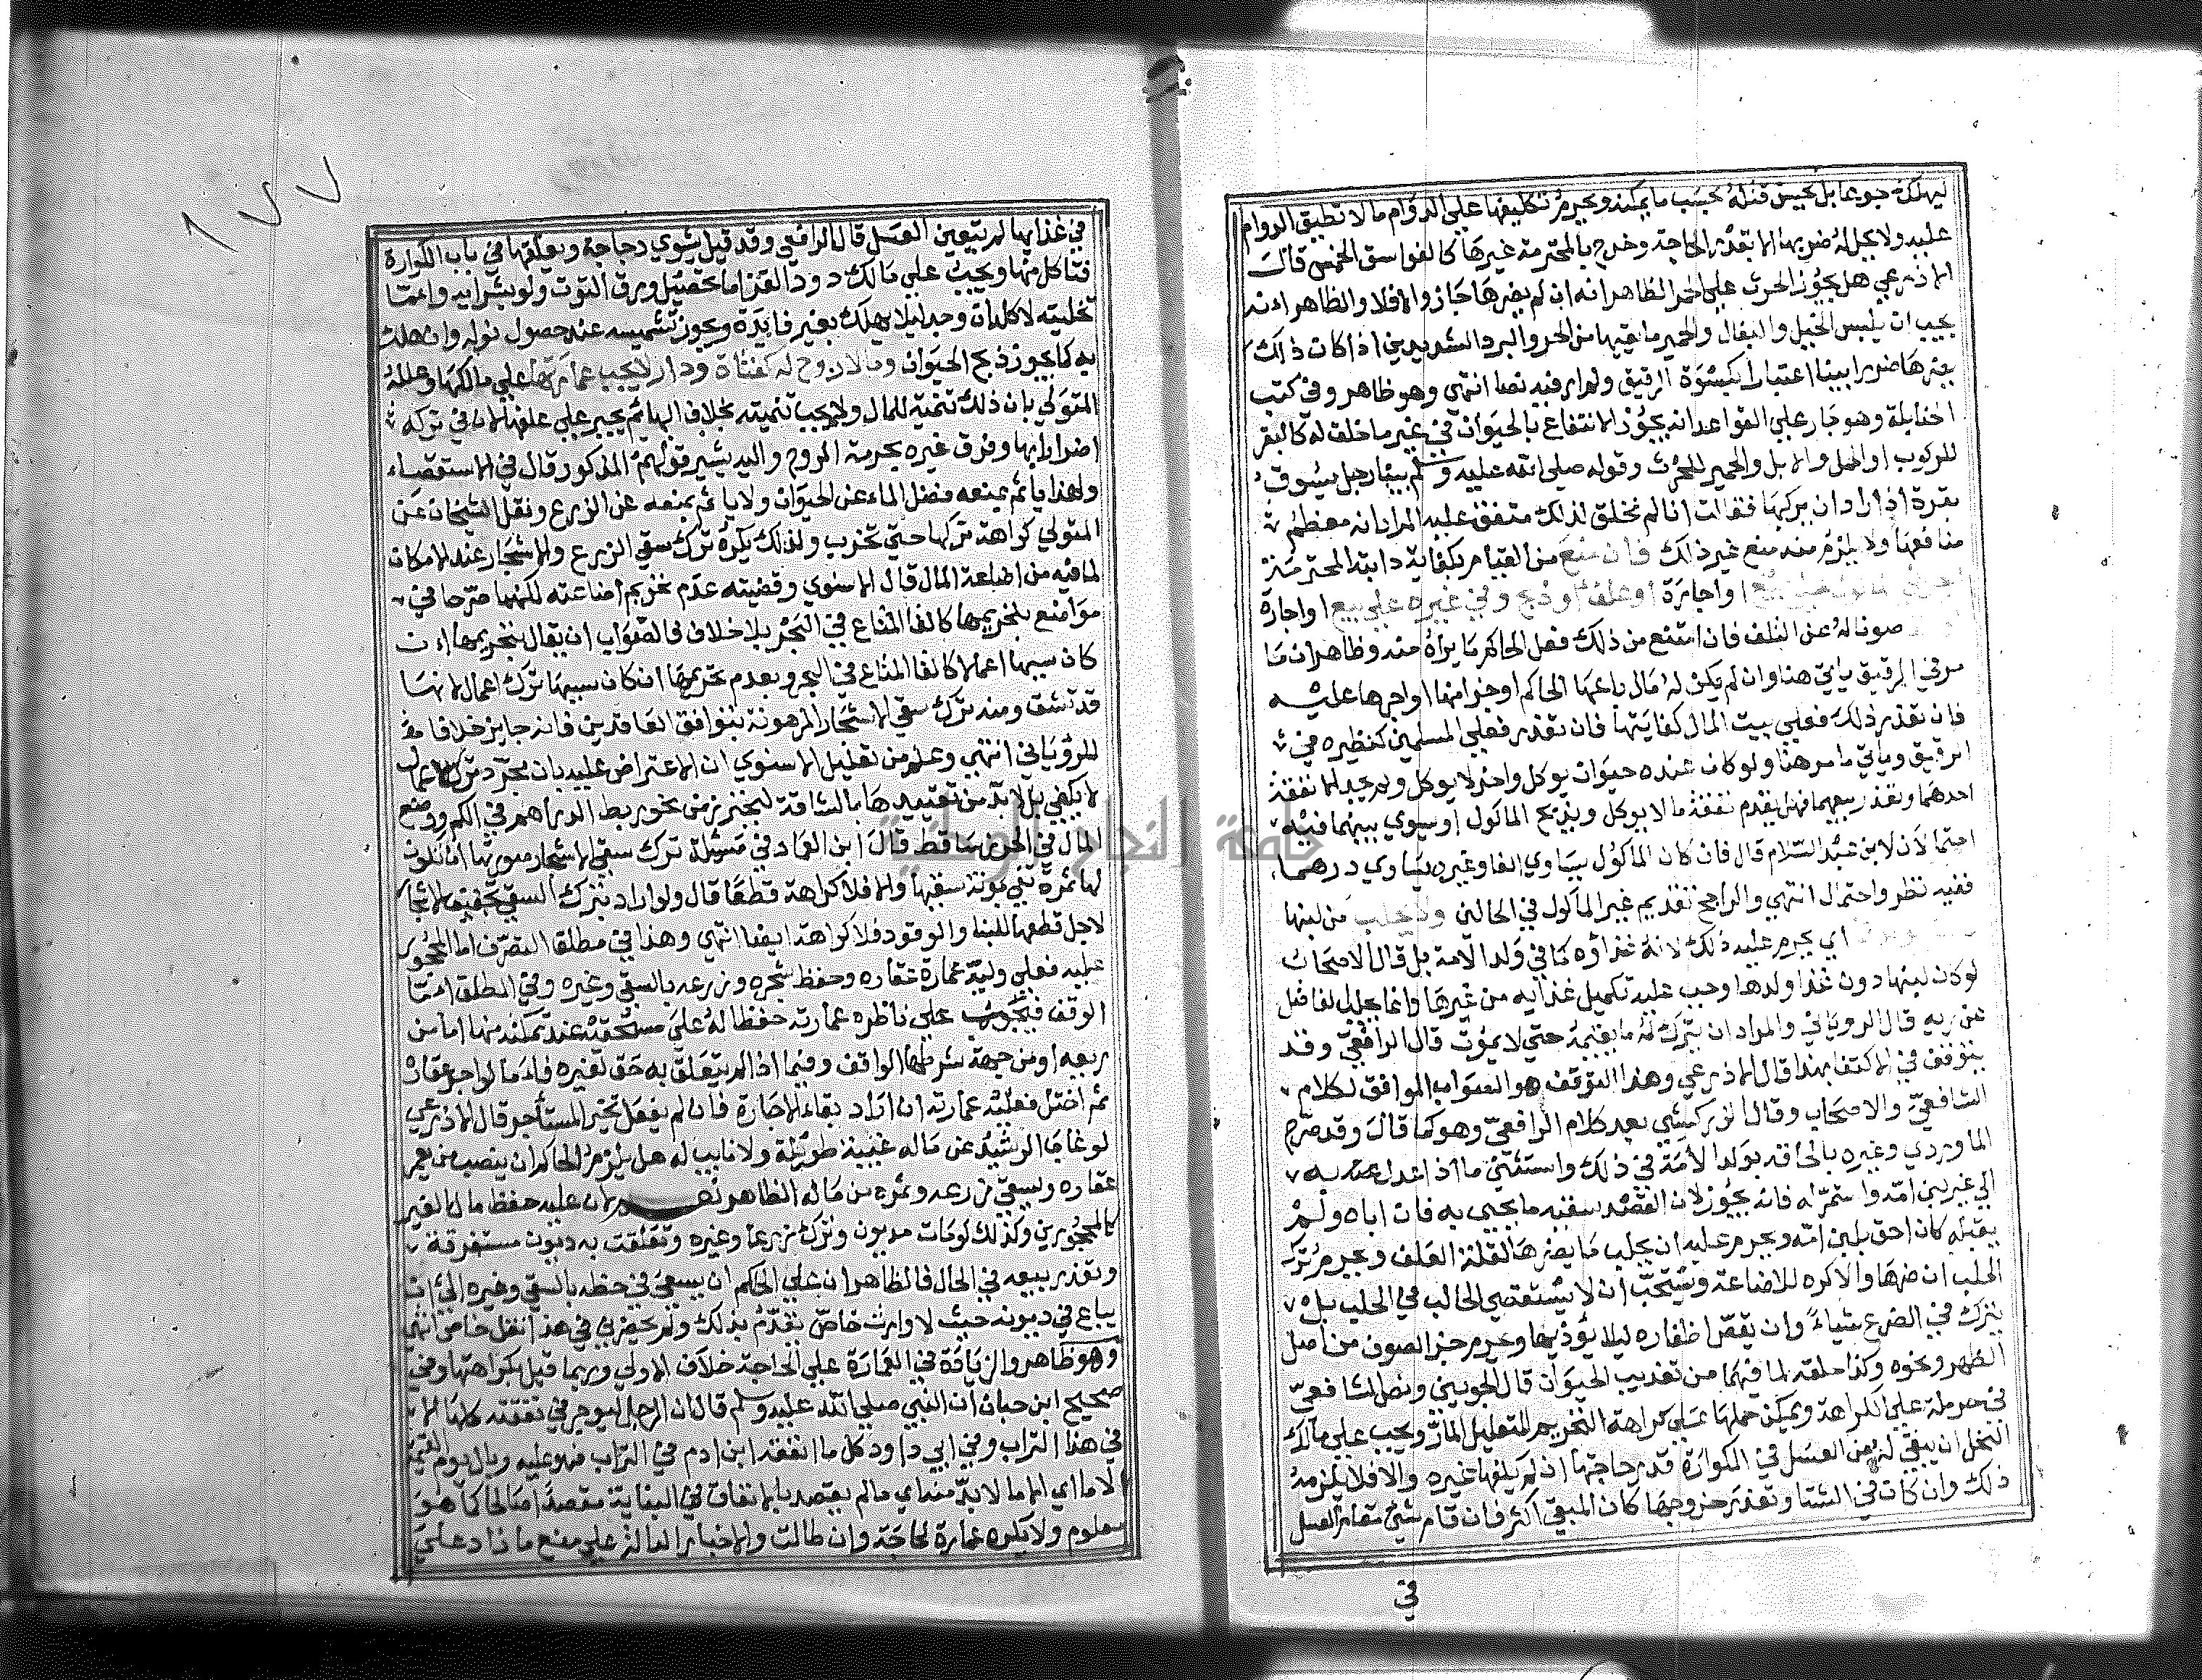 ليهلكه جوعا بل يحبس قتله بحسب ما يمكنه ويحرم تكليفها علي الدوام ما لا تطيق الدوام
عليه ولا يحل له ضربها الا بقدر الحاجة وخرج بالمحترمة غيرها كالفواسق الخمس قال
الاذرعي هل يجوز الحرث علي الحمر الظاهر انه ان لم يضرها جاز والا فلا والظاهر انه
يجب ان يلبس الخيل والبغال والحمير ما يقيها من الحر والبرد الشديدين اذا كان ذلك
يضرها ضررا بينا اعتبارا بكسوة الرقيق ولم ار فيه نصا انتهي وهو ظاهر وفي كتب
الحنابلة وهو جار علي القواعد انه يجوز الانتفاع بالحيوان في غير ما خلق له كالبقر
للركوب او الحمل والابل والحمير للحرث وقوله صلي الله عليه وسلم بينما رجل يسوق
بقرة اذ اراد ان يركبها فقالت انا لم نخلق لذلك متفق عليه المراد انه معظم
منافعها ولا يلزم منه منع غير ذلك فان امتنع من القيام بكفاية دابته المحترمة
اجبر في بيع او اجارة او علف او ذبح وفي غيره علي بيع او اجارة
صونا له عن التلف فان امتنع من ذلك فعل الحاكم ما يراه منه وظاهر ان ما
مر في الرقيق ياتي هنا وان لم يكن له مال باعها الحاكم او جزا منها او اجرها عليه
فان تعذر ذلك فعلي بيت المال كفايتها فان تعذر فعلي المسلمين كنظيره في
الرقيق وياتي ما مر هنا ولو كان عنده حيوان يوكل واخر لا يوكل ولم يجد الا نفقة
احدهما وتعذر بيعهما فهل يقدم نفقة ما لا يوكل ويذبح الماكول او يسوي بينهما فيه
احتمالان لابن عبد السلام قال فان كان الماكول يساوي الفا وغيره يساوي درهما
ففيه نظر واحتمال انتهي والراجح تقديم غير الماكول في الحالين ولا يحلب من لبنها
اي يحرم عليه ذلك لانه غذاؤه كما في ولد الامة بل قال الاصحاب
لو كان لبنها دون غذا ولدها وجب عليه تكميل غذايه من غيرها وانما يحلب الفاضل
عن ريه قال الروياني والمراد ان يترك له ما يقيمه حتي لا يموت قال الرافعي وقد
يتوقف في الاكتفا بهذا قال الاذرعي وهذا التوقف هو الصواب الموافق لكلام
الشافعي والاصحاب وقال الزركشي بعد كلام الرافعي وهو كما قال وقد صرح
الماوردي وغيره بالحاقه بولد الامة في ذلك واستثني ما اذا عدل به
الي غير لبن امه واستمراه فانه يجوز لان القصد سقيه ما يحيي به فان اباه ولم
يقبله كان احق بلبن امه ويحرم عليه ان يحلب ما يضرها لقلة العلف ويحرم ترك
الحلب ان ضرها والا كره للاضاعة ويستحب ان لا يستقصي الحالب في الحلب بل
يترك في الضرع شياء وان يقص اظفاره ليلا يؤذيها ويحرم جز الصوف من اصل
الظهر ونحوه وكذا حلقه لما فيهما من تعذيب الحيوان قال الجويني ونص الشافعي
في حرملة علي الكراهة ويمكن حملها علي كراهة التحريم للتعليل المار ويجب علي مالك
النحل ان يبقي له من العسل في الكوارة قدر حاجتها ان لم يكفها غيره والا فلا يلزمه
ذلك وان كان في الشتا وتعذر خروجها كان المبقي اكثر فان قام شي مقام العسل
في
١٧٧
في غذايها لم يتعين العسل قال الرافعي وقد قيل يشوي دجاجة ويعلقها في باب الكوارة
فتاكل منها ويجب علي مالك دود القز اما تحصيل ورق التوت ولو بشرايه واما
تخليته لاكله ان وجد ليلا يهلك بغير فايدة ويجوز تشميسه عند حصول نوله وان هلك
به كما يجوز ذبح الحيوان وما لا روح له كقناة ودار لا يجب عمارتها علي مالكها وعلله
المتولي بان ذلك تنمية للمال ولا يجب تنميته بخلاف البهائم يجبر علي علفها لان في تركه
اضرارا بها وفرق غيره بحرمة الروح واليه يشير قولهم المذكور قال في الاستقصاء
ولهذا ياثم بمنعه فضل الماء عن الحيوان ولا ياثم بمنعه عن الزرع ونقل الشيخان عن
المتولي كراهة تركها حتي تخرب ولذلك يكره ترك سقي الزرع والاشجار عند الامكان
لما فيه من اضاعة المال قال الاسنوي وقضيته عدم تحريم اضاعته لكنهما صرحا في
مواضع بتحريمها كالقا المتاع في البحر بلا خلاف فالصواب ان يقال بتحريمها ان
كان سببها اعمالا كالقا المتاع في البحر وبعدم تحريمها ان كان سببها ترك اعمال لانها
قد تشق ومنه ترك سقي الاشجار المرهونة بتوافق العاقدين فانه جايز خلافا
للروياني انتهي وعلم من تعليل الاسنوي ان الاعتراض عليه بان مجرد ترك الاعمال
لا يكفي بل لا بد من تقييدها بالشاقة ليحترز من نحو ربط الدراهم في الكم ووضع
المال في الحرز ساقط قال ابن العماد في مسئلة ترك سقي الاشجار صورتها اذا تكون
لها ثمرة تفي بمونة سقيها والا فلا كراهة قطعا قال ولو اراد بترك السقي تجفيف الاشجار
لاجل قطعها للبنا والوقود فلا كراهة ايضا انتهي وهذا في مطلق التصرف اما المحجور
عليه فعلي وليه عمارة عقاره وحفظ شجره وزرعه بالسقي وغيره وفي المطلق اما
الوقف فيجب علي ناظره عمارته حفظا له علي مستحقه عند تمكنه منها اما من
ريعه او من جهة شرطها الواقف وفيما اذا لم يتعلق به حق لغيره فاما لو اجر عقارا
ثم اختل فعليه عمارته ان اراد بقاء الاجارة فان لم يفعل تخير المستأجر قال الاذرعي
لو غاب الرشيد عن ماله غيبة طويلة ولا نايب له هل يلزم الحاكم ان ينصب من يعمر
عقاره ويسقي زرعه وثمره من ماله الظاهر نعم لان عليه حفظ مال الغير
كالمحجورين وكذلك لو مات مديون وترك زرعا وغيره وتعلقت به ديون مستغرقة
وتعذر بيعه في الحال فالظاهر ان علي الحاكم ان يسعي في حفظه بالسقي وغيره الي ان
يباع في ديونه حيث لا وارث خاص تقدم بذلك ولم يحضرني في هذا نقل خاص انتهي
وهو ظاهر والزيادة في العمارة علي الحاجة خلاف الاولي وربما قيل بكراهتها وفي
صحيح ابن حبان ان النبي صلي الله عليه وسلم قال ان الرجل ليوجر في نفقته كلها الا
في هذا التراب وفي ابي داود كل ما انفقه ابن ادم في التراب فهو عليه وبال يوم القيمة
الا ما اي الا ما لا بد منه اي ما لم يقصد بالانفاق في البناية مقصدا صالحا كما هو
معلوم ولا يكره عمارة لحاجة وان طالت والاخبار الدالة علي منع ما زاد علي
جامعة النجاح الوطنية